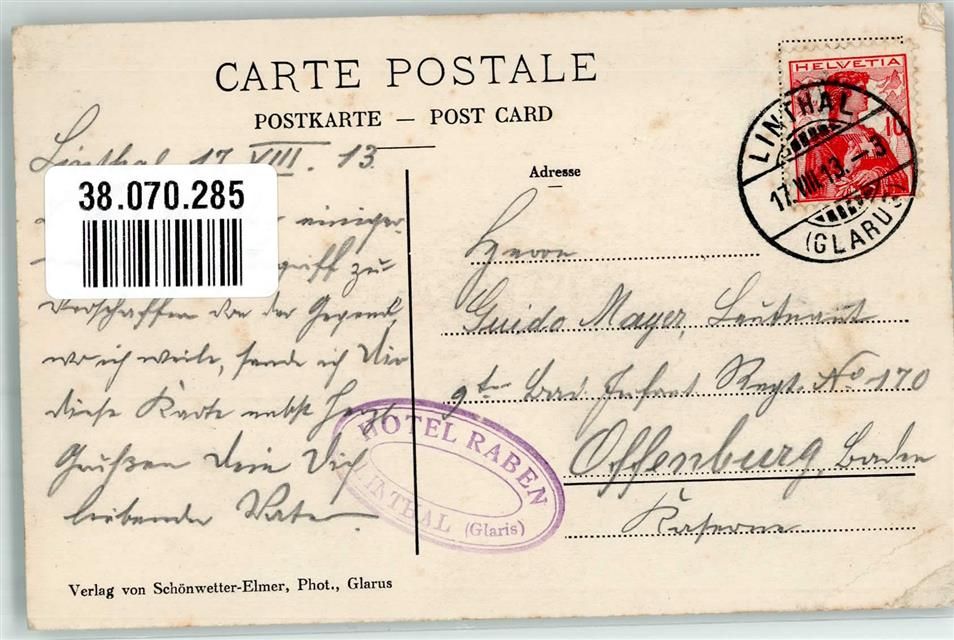 CARTE POSTALE
POSTKARTE — POST CARD
Linthal 17. VIII. 13.
38.070.285
einiger
griff zu
verschaffen von der Gegend,
wo ich weile, sende ich Dir
diese Karte nebst herzl.
Grüßen Dein Dich
liebender Vater.
Verlag von Schönwetter-Elmer, Phot., Glarus
HOTEL RABEN
LINTHAL (Glaris)
HELVETIA
10
LINTHAL
17.VIII.13.–3
(GLARUS)
Adresse
Herrn
Guido Mayer, Leutnant
9ten Bad. Infant Regt. No 170
Offenburg, Baden
Kaserne